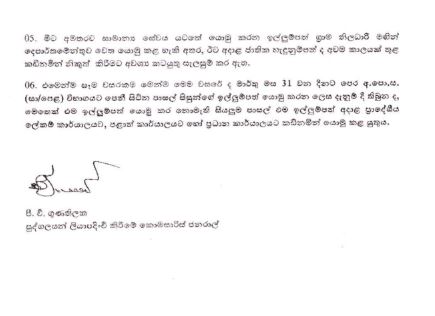 05. මීට අමතරව සාමාන්‍ය සේවය යටතේ යොමු කරන ඉල්ලුම්පත් ග්‍රාම නිලධාරී මඟින්
දෙපාර්තමේන්තුව වෙත යොමු කළ හැකි අතර, ඊට අදාළ ජාතික හැඳුනුම්පත් ද අවම කාලයක් තුළ
කඩිනමින් නිකුත් කිරීමට අවශ්‍ය කටයුතු සැලසුම් කර ඇත.
06. එමෙන්ම සෑම වසරකම මෙන්ම මෙම වසරේ ද මාර්තු මස 31 වන දිනට පෙර අ.පො.ස.
(සා/පෙළ) විභාගයට පෙනී සිටින පාසල් සිසුන්ගේ ඉල්ලුම්පත් යොමු කරන ලෙස දැනුම් දී තිබුන ද,
මෙතෙක් එම ඉල්ලුම්පත් යොමු කර නොමැති සියලුම පාසල් එම ඉල්ලුම්පත් අදාළ ප්‍රාදේශීය
ලේකම් කාර්යාලයට, පළාත් කාර්යාලයට හෝ ප්‍රධාන කාර්යාලයට කඩිනමින් යොමු කළ යුතුය.
පී. වී. ගුණතිලක
පුද්ගලයන් ලියාපදිංචි කිරීමේ කොමසාරිස් ජනරාල්